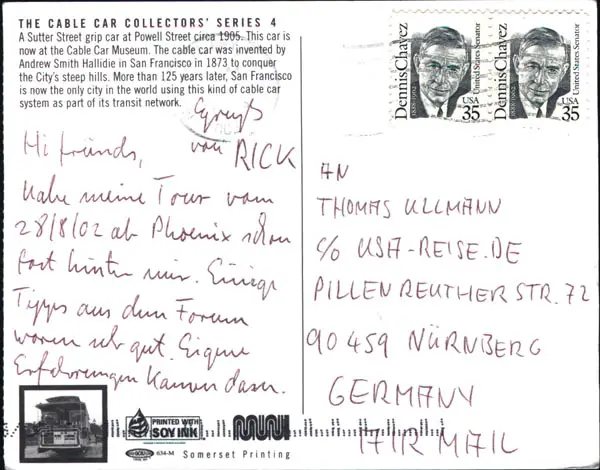 THE CABLE CAR COLLECTORS' SERIES 4
A Sutter Street grip car at Powell Street circa 1905. This car is
now at the Cable Car Museum. The cable car was invented by
Andrew Smith Hallidie in San Francisco in 1873 to conquer
the City's steep hills. More than 125 years later, San Francisco
is now the only city in the world using this kind of cable car
system as part of its transit network.
Hi friends,
habe meine Tour vom
28/8/02 ab Phoenix schon
fast hinter mir. Einige
Tipps aus dem Forum
waren sehr gut. Eigene
Erfahrungen kamen dazu.
von RICK
Dennis Chavez
1888-1962
United States Senator
USA
35
Dennis Chavez
1888-1962
United States Senator
USA
35
AN
THOMAS ULLMANN
C/O USA-REISE.DE
PILLENREUTHER STR. 72
90459 NÜRNBERG
GERMANY
AIR MAIL
PRINTED WITH
SOY INK
634-M
Somerset Printing